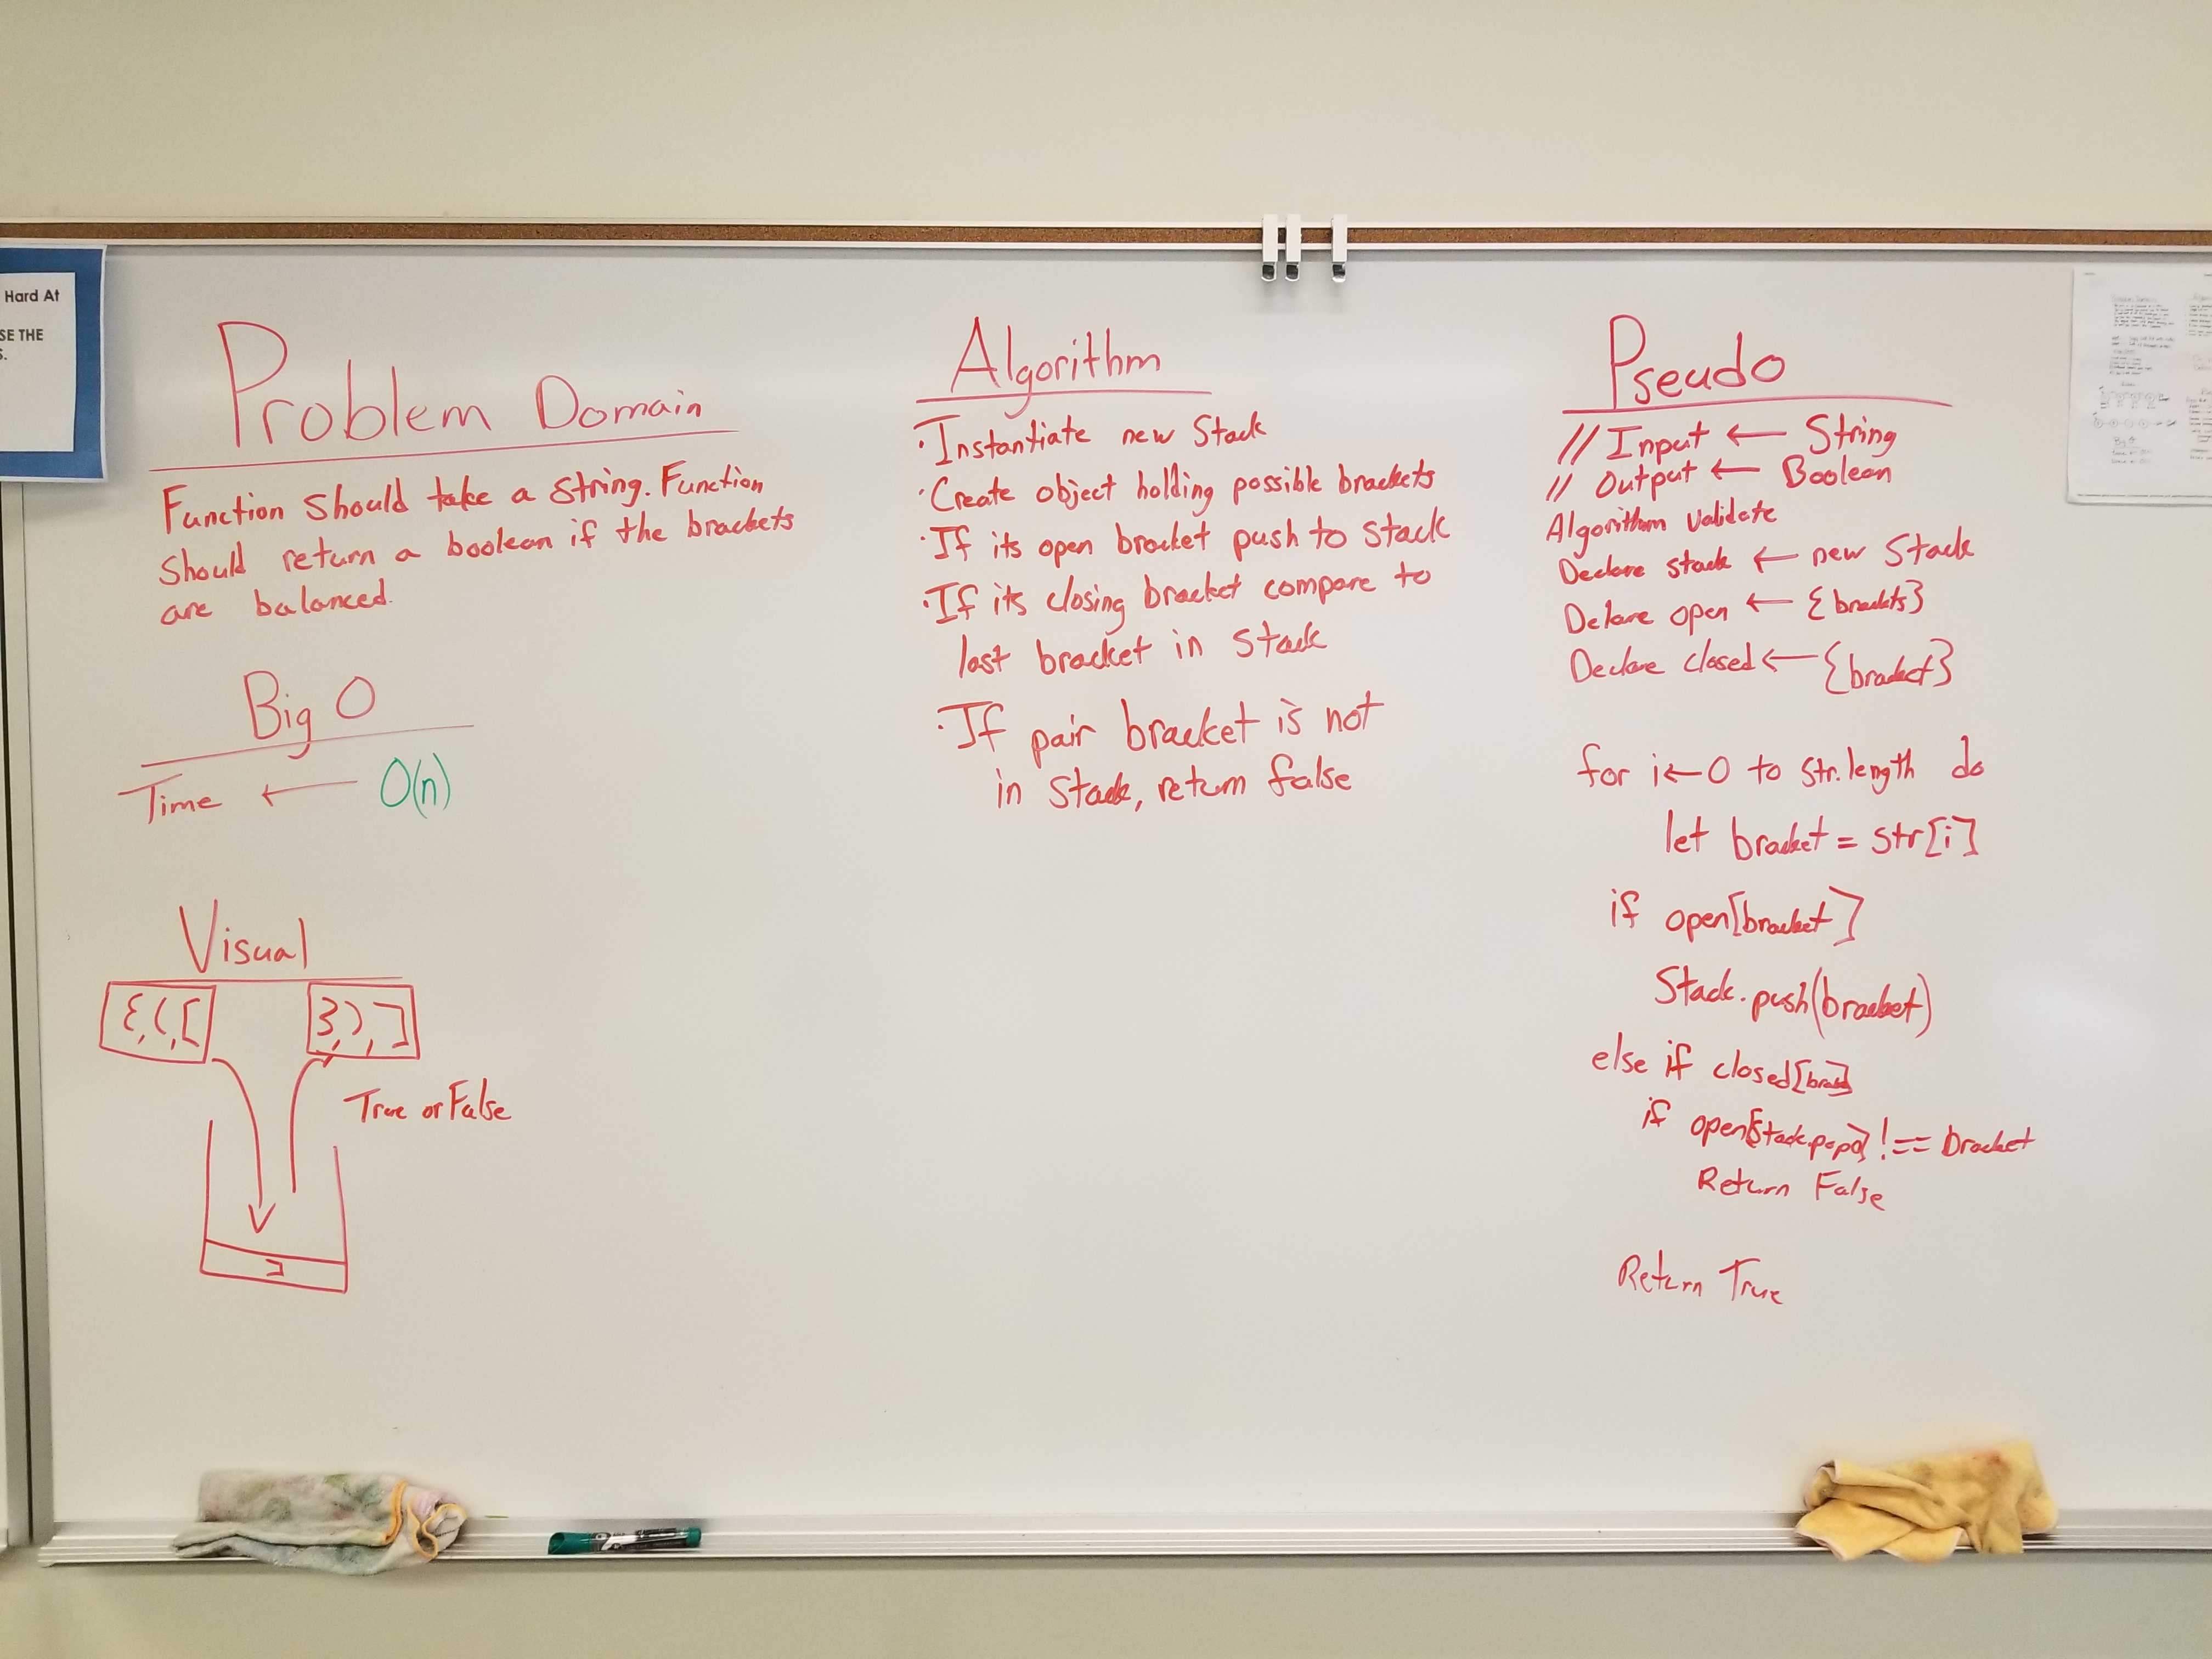 Hard At
SE THE
S.
Problem Domain
Function should take a string. Function
should return a boolean if the brackets
are balanced.
Big O
Time ← O(n)
Visual
{,(,[
},),]
True or False
Algorithm
· Instantiate new Stack
· Create object holding possible brackets
· If its open bracket push to stack
· If its closing bracket compare to
last bracket in stack
· If pair bracket is not
in stack, return false
Pseudo
// Input ← String
// Output ← Boolean
Algorithm validate
Declare stack ← new Stack
Delare open ← {brackets}
Declare closed ← {bracket}
for i ← 0 to str.length do
let bracket = str[i]
if open[bracket]
Stack.push(bracket)
else if closed[brac]
if open[stack.pop()] !== bracket
Return False
Return True